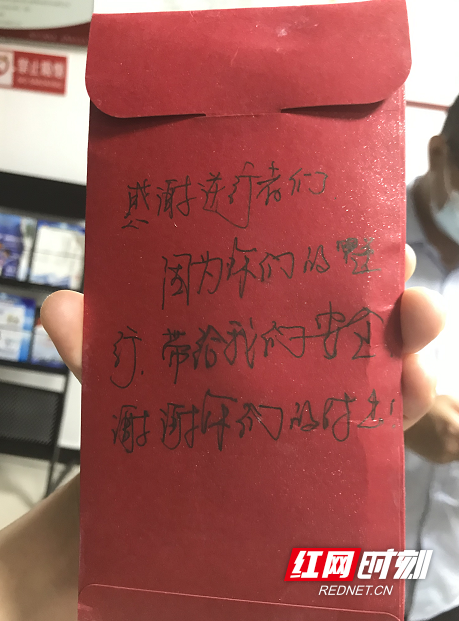 禁止吸烟
感谢逆行者们
因为你们的
行.带给我们安全
谢谢你们的付出!
红网时刻
REDNET.CN